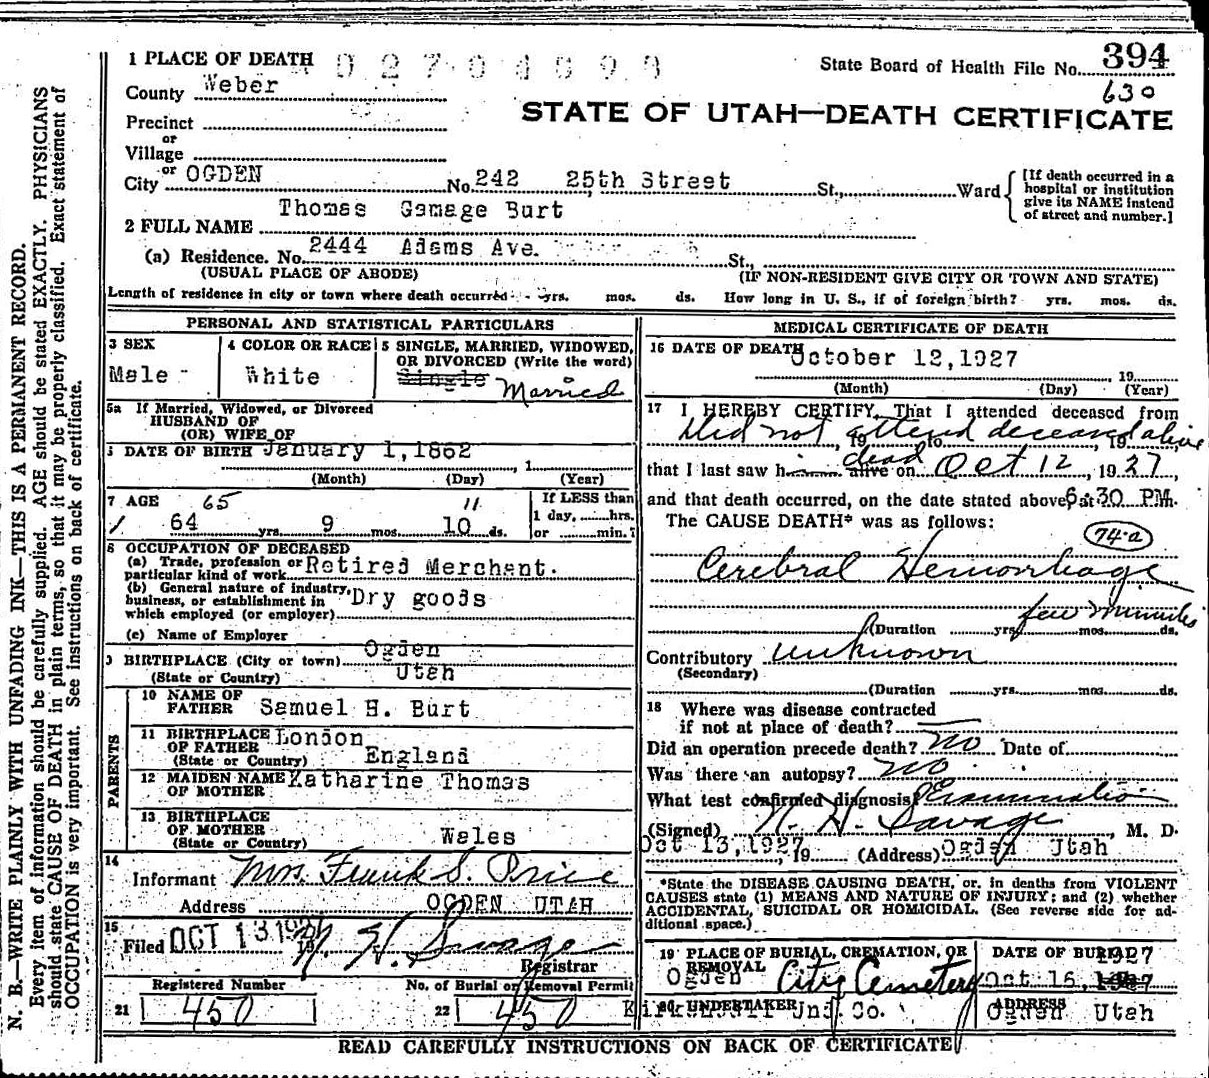 N. B.—WRITE PLAINLY WITH UNFADING INK—THIS IS A PERMANENT RECORD.
Every item of information should be carefully supplied. AGE should be stated EXACTLY. PHYSICIANS
should state CAUSE OF DEATH in plain terms, so that it may be properly classified. Exact statement of
OCCUPATION is very important. See instructions on back of certificate.
State Board of Health File No. 394
630
STATE OF UTAH—DEATH CERTIFICATE
1 PLACE OF DEATH
County Weber
Precinct
or
Village
or
City OGDEN No. 242 25th Street St., Ward
[If death occurred in a
hospital or institution
give its NAME instead
of street and number.]
2 FULL NAME Thomas Gamage Burt
(a) Residence. No. 2444 Adams Ave. St.,
(USUAL PLACE OF ABODE) (IF NON-RESIDENT GIVE CITY OR TOWN AND STATE)
Length of residence in city or town where death occurred yrs. mos. ds. How long in U. S., if of foreign birth? yrs. mos. ds.
PERSONAL AND STATISTICAL PARTICULARS
3 SEX
Male
4 COLOR OR RACE
White
5 SINGLE, MARRIED, WIDOWED,
OR DIVORCED (Write the word)
Single Married
5a If Married, Widowed, or Divorced
HUSBAND OF
(OR) WIFE OF
DATE OF BIRTH January 1, 1862, 1
(Month) (Day) (Year)
7 AGE 65 11
64 yrs. 9 mos. 10 ds.
If LESS than
1 day, hrs.
or min.?
8 OCCUPATION OF DECEASED
(a) Trade, profession or
particular kind of work Retired Merchant.
(b) General nature of industry,
business, or establishment in
which employed (or employer) Dry goods
(c) Name of Employer
9 BIRTHPLACE (City or town) Ogden
(State or Country) Utah
PARENTS
10 NAME OF
FATHER Samuel H. Burt
11 BIRTHPLACE
OF FATHER
(State or Country) London England
12 MAIDEN NAME
OF MOTHER Katharine Thomas
13 BIRTHPLACE
OF MOTHER
(State or Country) Wales
14
Informant Mrs. Frank S. Price
Address OGDEN UTAH
15
Filed OCT 13 1927 19
H. Savage
Registrar
Registered Number
21 450
No. of Burial or Removal Permit
22 450
MEDICAL CERTIFICATE OF DEATH
16 DATE OF DEATH October 12, 1927
, 19
(Month) (Day) (Year)
17 I HEREBY CERTIFY, That I attended deceased from
Did not attend deceased alive
, 19 to , 19
that I last saw h dead alive on Oct 12, 1927,
and that death occurred, on the date stated above, at 6:30 P.M.
The CAUSE DEATH* was as follows:
74-a
Cerebral Hemorrhage
few minutes
(Duration yrs. mos. ds.
Contributory unknown
(Secondary)
(Duration yrs. mos. ds.
18 Where was disease contracted
if not at place of death?
Did an operation precede death? No Date of
Was there an autopsy? No
What test confirmed diagnosis? Examination
(Signed) H. Savage, M. D.
Oct 13, 1927, 19 (Address) Ogden Utah
*State the DISEASE CAUSING DEATH, or, in deaths from VIOLENT
CAUSES state (1) MEANS AND NATURE OF INJURY; and (2) whether
ACCIDENTAL, SUICIDAL OR HOMICIDAL. (See reverse side for ad-
ditional space.)
19 PLACE OF BURIAL, CREMATION, OR
REMOVAL
Ogden City Cemetery
DATE OF BURIAL 1927
Oct 16,
20 UNDERTAKER
Und. Co.
ADDRESS
Ogden Utah
READ CAREFULLY INSTRUCTIONS ON BACK OF CERTIFICATE